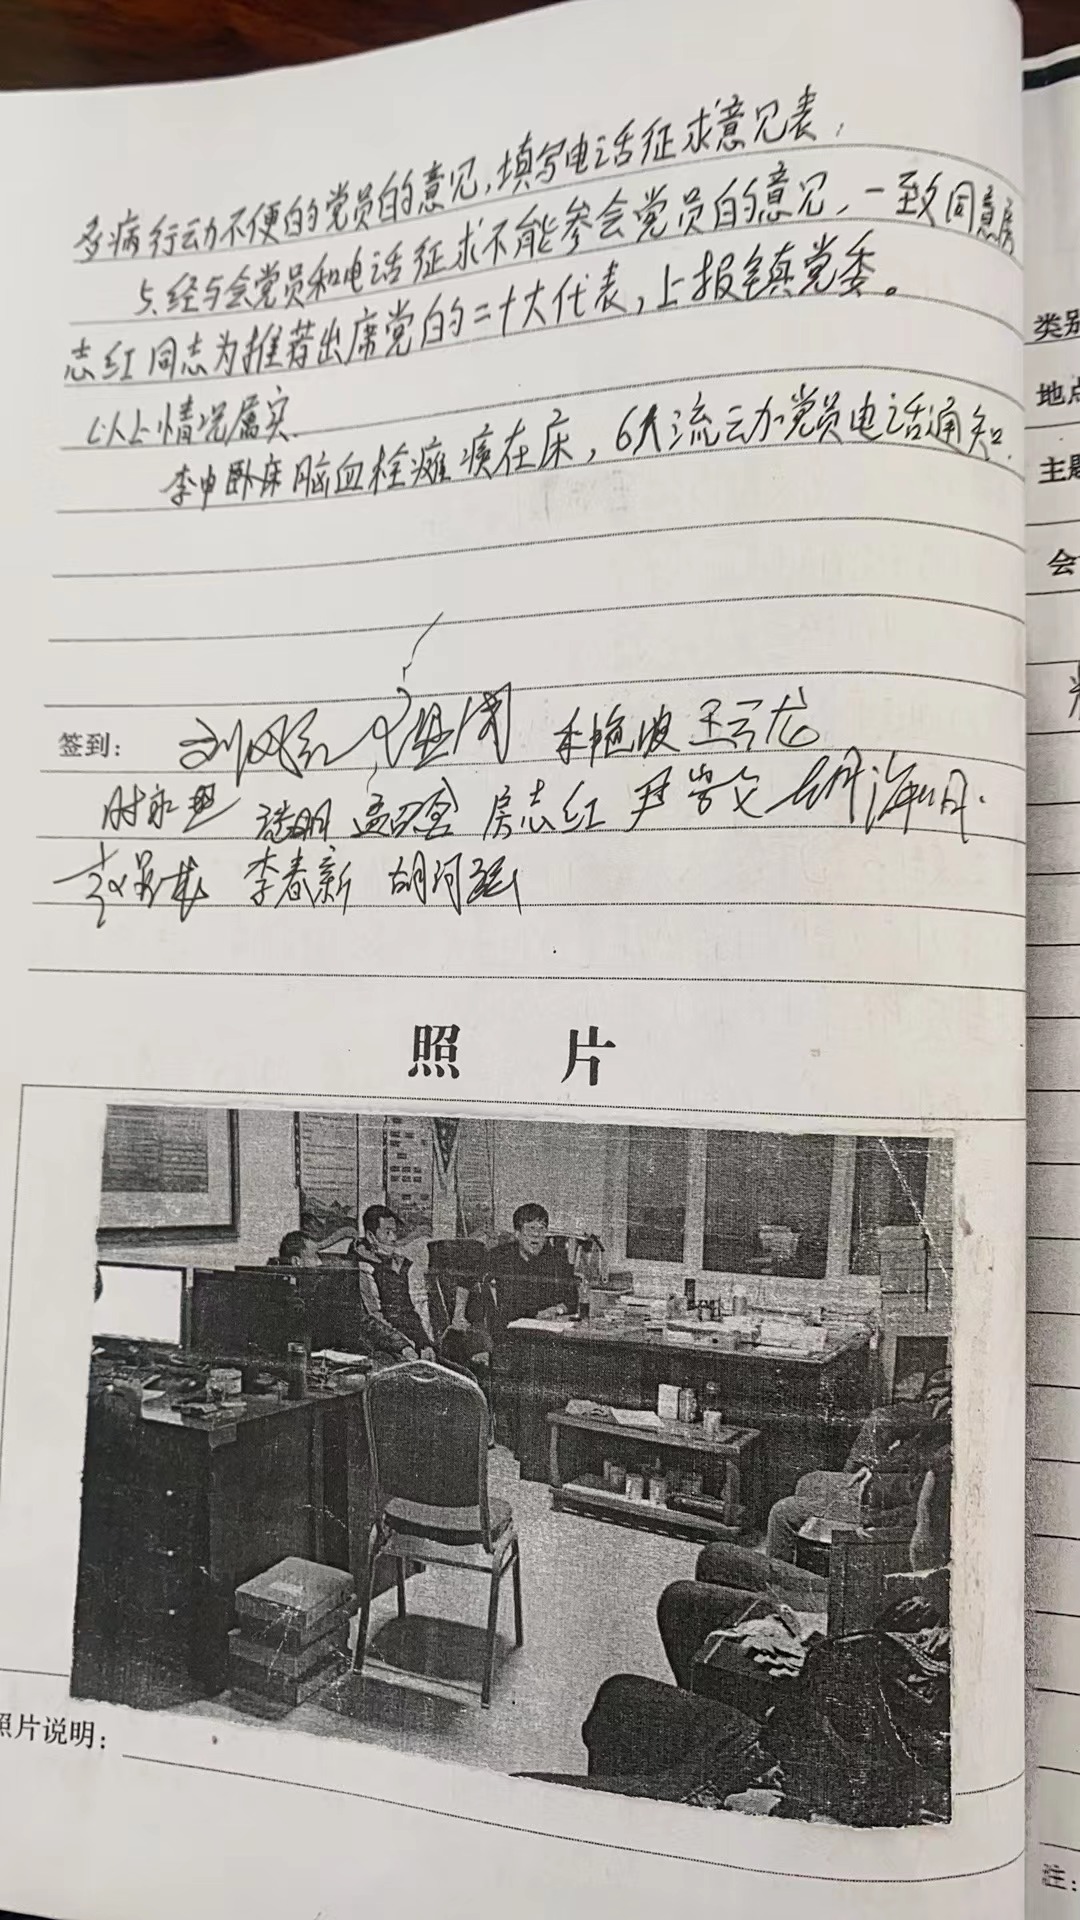 多病行动不便的党员的意见,填写电话征求意见表,
5、经与会党员和电话征求不能参会党员的意见,一致同意房
志红同志为推荐出席党的二十大代表,上报镇党委。
以上情况属实
李中卧床脑血栓瘫痪在床,6人流动党员电话通知.
签到:
王云龙
房志红
李春新
照 片
照片说明:
类别
地点
主题
会
注: